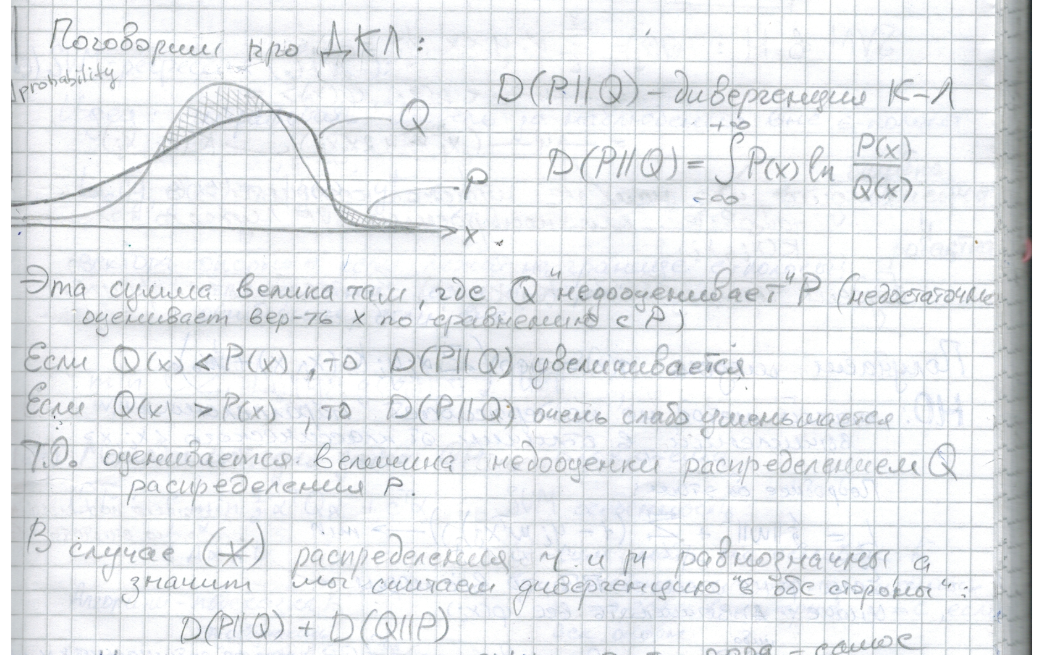 Поговорим про ДКЛ:
probability
Q
P
x
D(P||Q) – дивергенция К-Л
D(P||Q) = ∫_{-∞}^{+∞} P(x) ln P(x)/Q(x)
Эта сумма велика там, где Q "недооценивает" P (недостаточно
оценивает вер-ть x по сравнению с P)
Если Q(x) < P(x), то D(P||Q) увеличивается
Если Q(x) > P(x), то D(P||Q) очень слабо уменьшается
Т.О. оценивается величина недооценки распределением Q
распределения P.
В случае (*) распределения и равнозначны а
значит мы считаем дивергенцию "в обе стороны":
D(P||Q) + D(Q||P)
самое